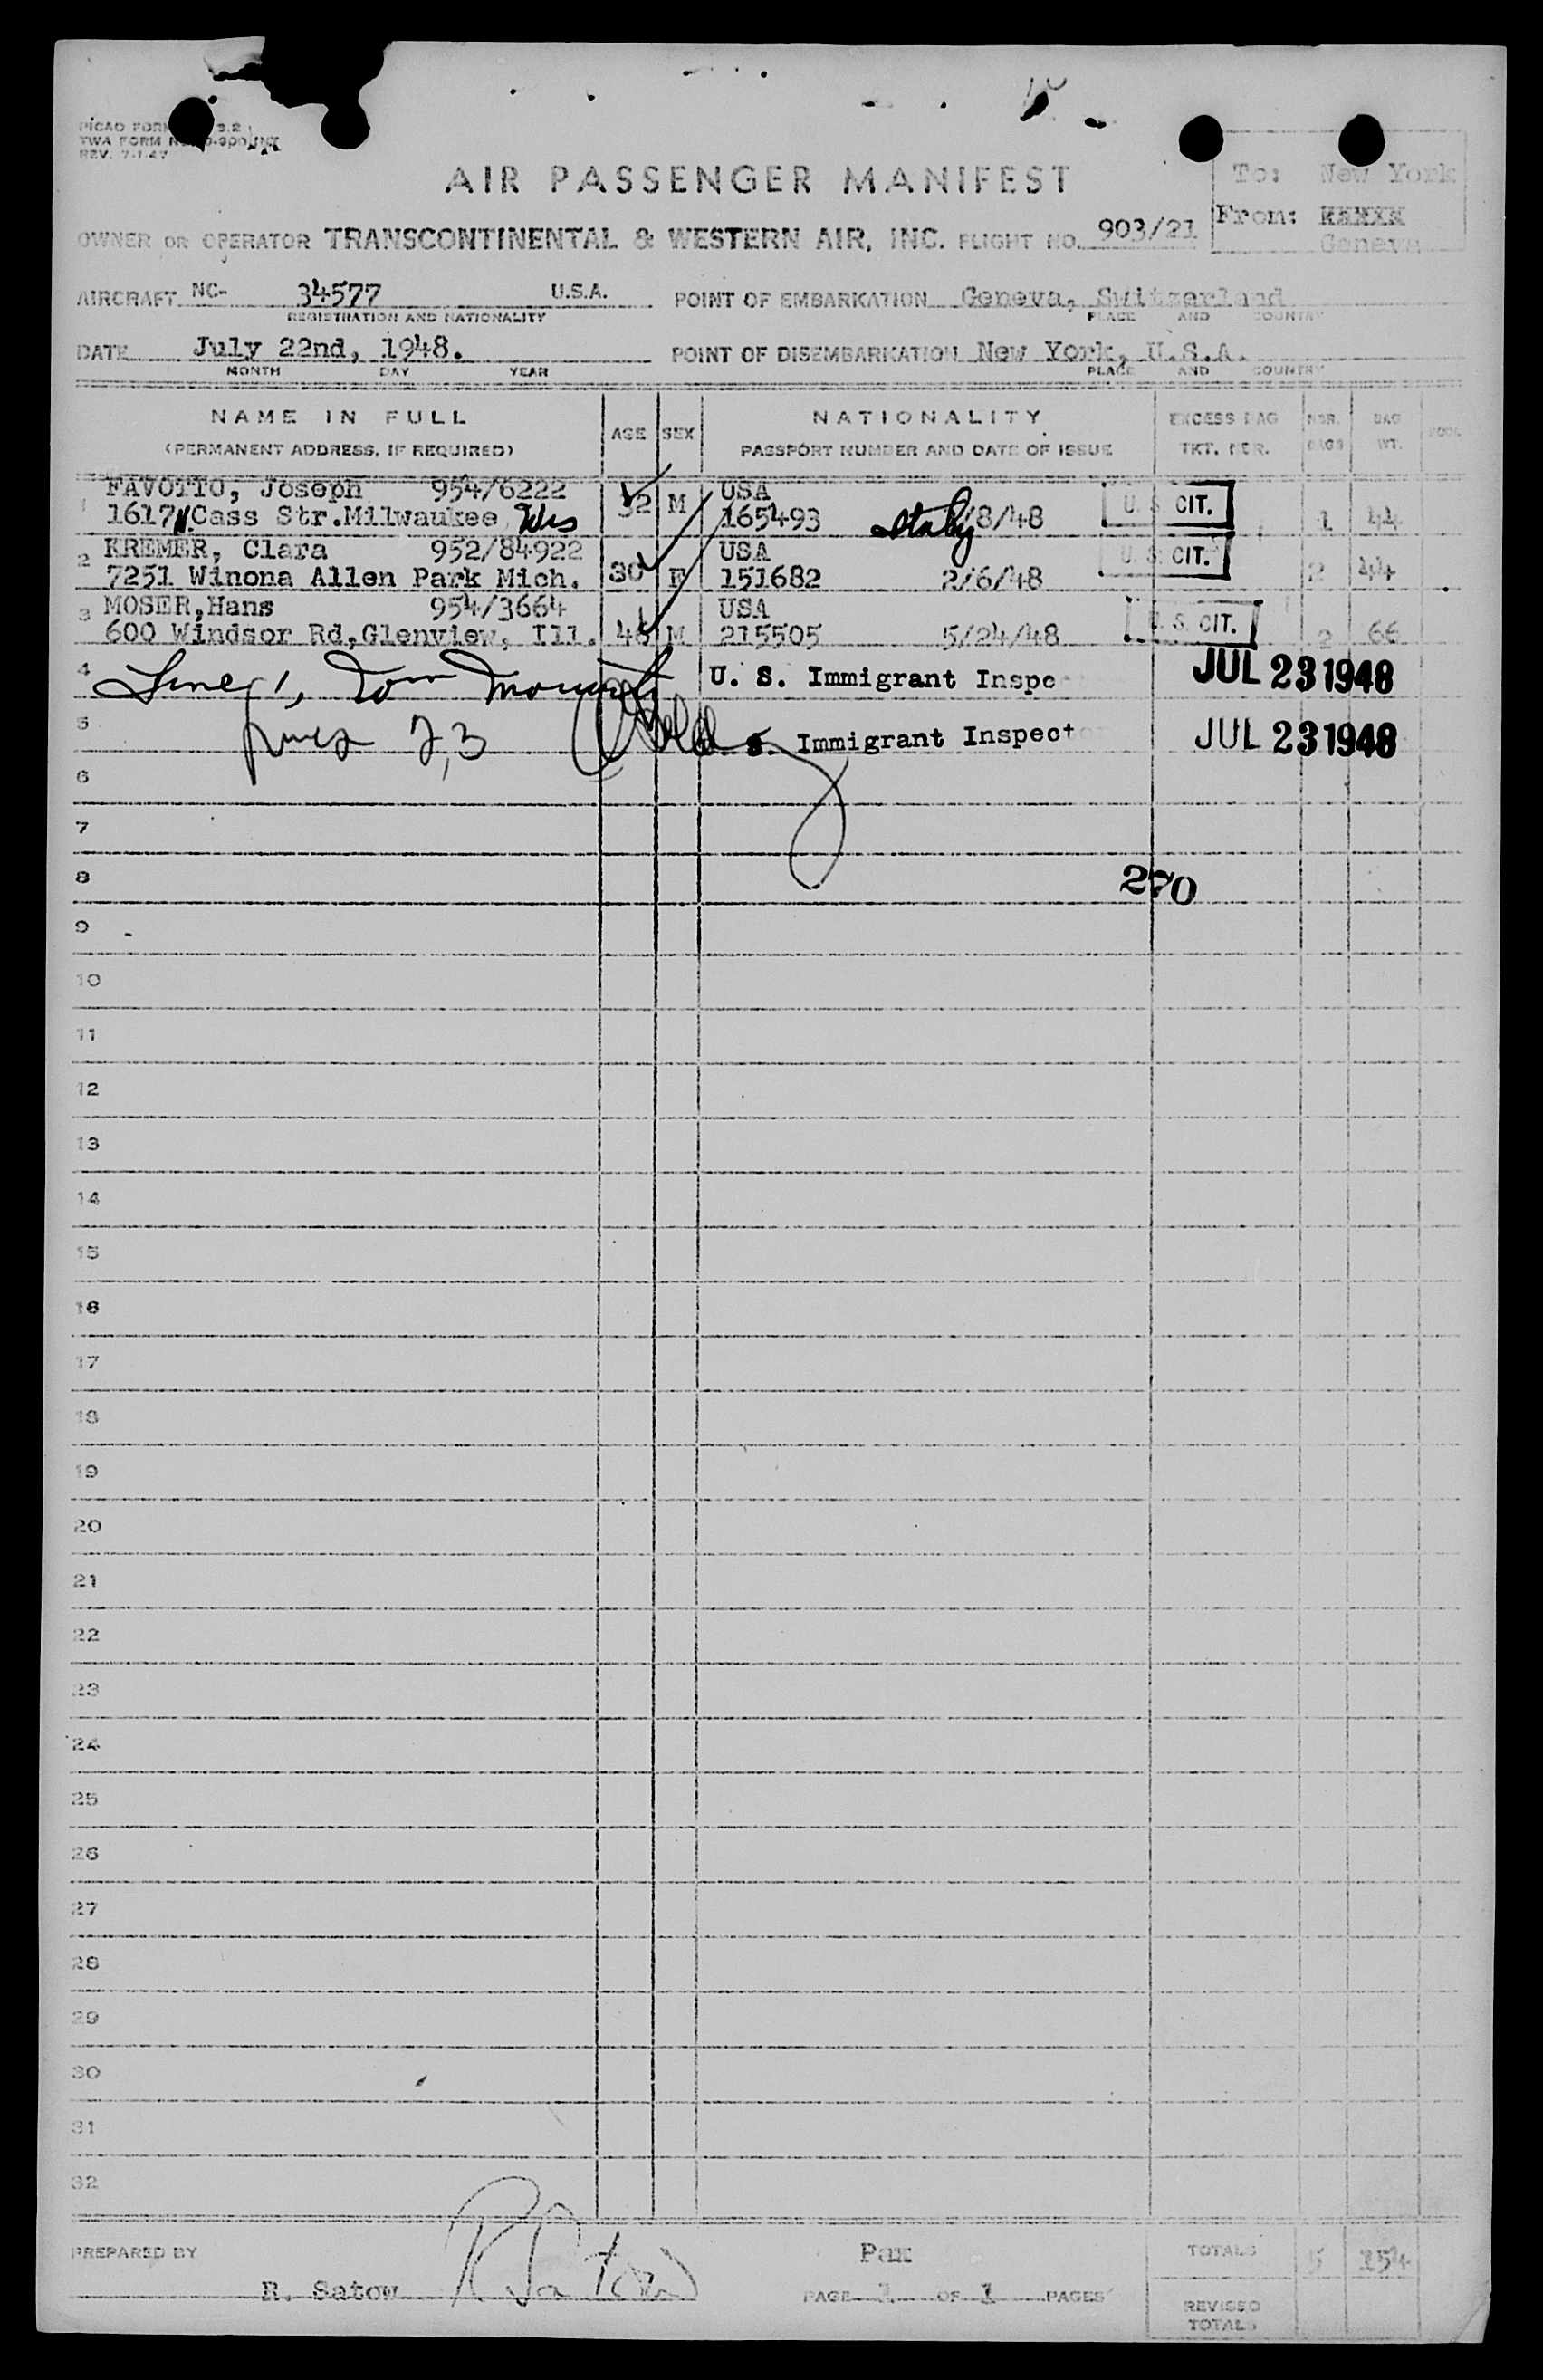 REV. 7-1-47
AIR PASSENGER MANIFEST
To: New York
From:
Geneva
OWNER OR OPERATOR TRANSCONTINENTAL & WESTERN AIR, INC. FLIGHT NO. 903/21
AIRCRAFT NC- 34577 U.S.A. POINT OF EMBARKATION Geneva, Switzerland
REGISTRATION AND NATIONALITY PLACE AND COUNTRY
DATE July 22nd, 1948. POINT OF DISEMBARKATION New York, U.S.A.
MONTH DAY YEAR PLACE AND COUNTRY
NAME IN FULL AGE SEX NATIONALITY EXCESS BAG NBR. BAG
(PERMANENT ADDRESS, IF REQUIRED) PASSPORT NUMBER AND DATE OF ISSUE TKT. NBR. BAGS WT.
1 FAVOTTO, Joseph 954/6222 32 M USA U. S. CIT. 1 44
1617 N. Cass Str.Milwaukee Wis 165493 Italy /8/48
2 KREMER, Clara 952/84922 30 F USA U. S. CIT. 2 44
7251 Winona Allen Park Mich. 151682 2/6/48
3 MOSER,Hans 954/3664 48 M USA U. S. CIT. 2 66
600 Windsor Rd,Glenview, Ill. 215505 5/24/48
4 Line 1, Tom U. S. Immigrant Inspe JUL 23 1948
5 Lines 2,3 S. Immigrant Inspect JUL 23 1948
6
7
8 270
9
10
11
12
13
14
15
16
17
18
19
20
21
22
23
24
25
26
27
28
29
30
31
32
PREPARED BY R. Satow R Satow Pax TOTALS 5 154
PAGE 1 OF 1 PAGES
REVISED
TOTALS